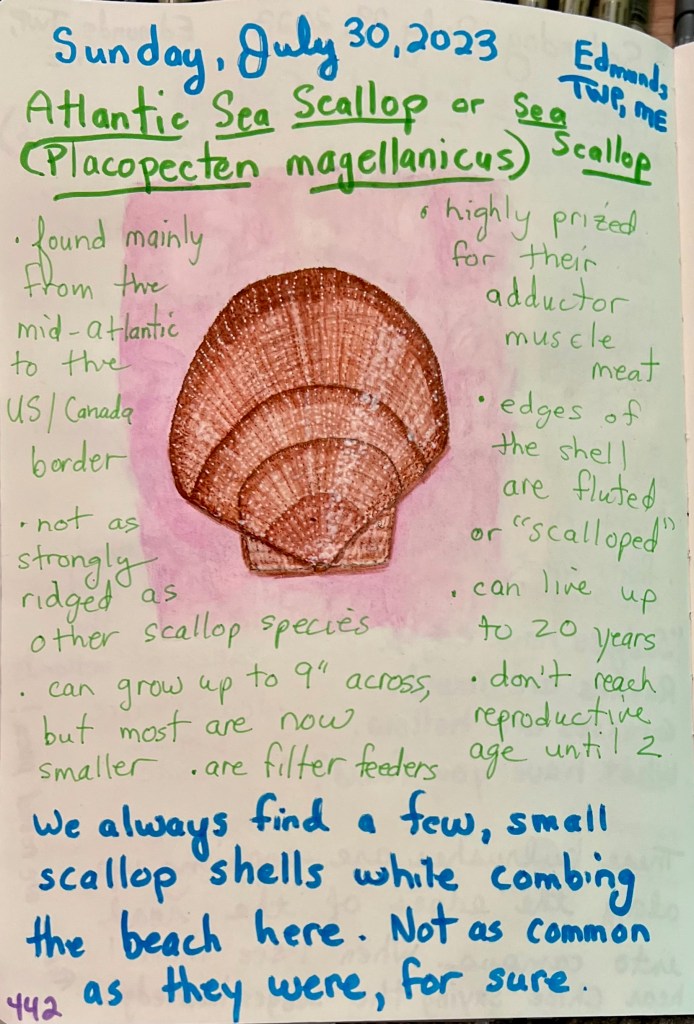 Sunday, July 30, 2023
Edmunds
TWP, ME
Atlantic Sea Scallop or Sea
Scallop
(Placopecten magellanicus)
• found mainly
from the
mid-atlantic
to the
US/Canada
border
• not as
strongly
ridged as
other scallop species
• can grow up to 9" across,
but most are now
smaller • are filter feeders
• highly prized
for their
adductor
muscle
meat
• edges of
the shell
are fluted
or "scalloped"
• can live up
to 20 years
• don't reach
reproductive
age until 2
We always find a few, small
scallop shells while combing
the beach here. Not as common
as they were, for sure.
442